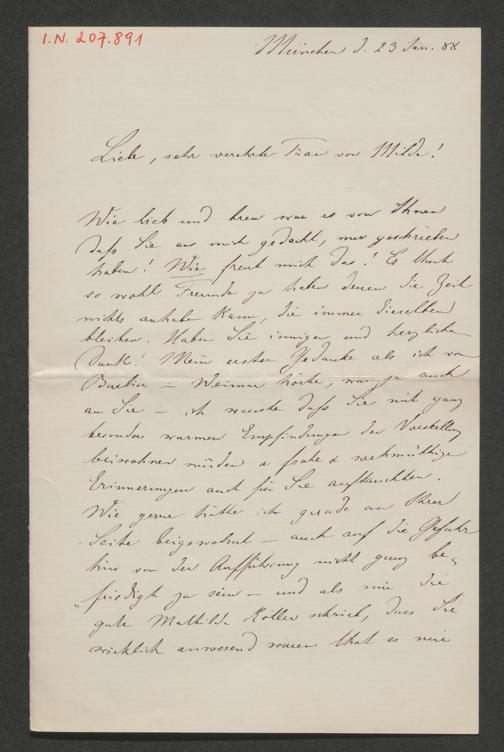 I.N. 207.891
München d. 23 Jan. 88
Liebe, sehr verehrte Frau von Milde!
Wie lieb und treu war es von Ihnen
daß Sie an mich gedacht, mir geschrieben
haben! Wie freut mich das! Es thut
so wohl Freunde zu haben denen die Zeit
nichts anhaben kann, die immer dieselben
bleiben. Haben Sie innigen und herzlichen
Dank! Mein erster Gedanke als ich von
Barbier – Weimar hörte, war ja auch
an Sie – ich wusste daß Sie mit ganz
besonders warmen Empfindungen der Vorstellung
beiwohnen würden & frohe & wehmüthige
Erinnerungen auch für Sie auftauchten.
Wie gerne hätte ich gerade an Ihrer
Seite beigewohnt – auch auf die Gefahr
hin von der Aufführung nicht ganz be-
friedigt zu sein – und als mir die
gute Mathilde schrieb, dass Sie
wirklich anwesend waren that es mir